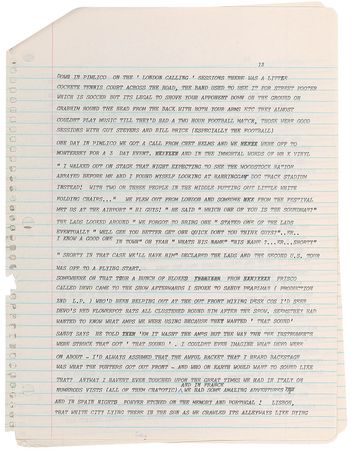 13
DOWN IN PIMLICO ON THE ' LONDON CALLING ' SESSIONS THERE WAS A LITTLE
CONCRETE TENNIS COURT ACROSS THE ROAD, THE BAND USED TO USE IT FOR STREET FOOTER
WHICH IS SOCCER BUT ITS LEGAL TO SHOVE YOUR OPPONENT DOWN ON THE GROUND OR
GRAB HIM ROUND THE HEAD FROM THE BACK WITH BOTH YOUR ARMS ETC THEY ALMOST
COULDNT PLAY MUSIC TILL THEY'D HAD A TWO HOUR FOOTBALL MATCH, THOSE WERE GOOD
SESSIONS WITH GUY STEVENS AND BILL PRICE (ESPECIALLY THE FOOTBALL)
ONE DAY IN PIMLICO WE GOT A CALL FROM CHET HELMS AND WE WERE OFF TO
MONTERREY FOR A 2 DAY EVENT, AND IN THE IMMORTAL WORDS OF MR K VINYL
" I WALKED OUT ON STAGE THAT NIGHT EXPECTING TO SEE THE WOODSTOCK NATION
ARRAYED BEFORE ME AND I FOUND MYSELF LOOKING AT HARRINGAY DOG TRACK STADIUM
INSTEAD! WITH TWO OR THREE PEOPLE IN THE MIDDLE PUTTING OUT LITTLE WHITE
FOLDING CHAIRS..." WE FLEW OUT FROM LONDON AND SOMEONE FROM THE FESTIVAL
MET US AT THE AIRPORT " HI GUYS! " HE SAID " WHICH ONE OF YOU IS THE SOUNDMAN?"
THE LADS LOOKED AROUND " WE FORGOT TO BRING ONE " STATED ONE OF THE LADS
EVENTUALLY " WELL GEE YOU BETTER GET ONE QUICK DONT YOU THINK GUYS!"..ER..
I KNOW A GOOD ONE IN TOWN" OH YEAH " WHATS HIS NAME? "HIS NAME ?...ER...SHORTY"
" SHORTY IN THAT CASE WE'LL HAVE HIM" DECLARED THE LADS AND THE SECOND U.S. TOUR
WAS OFF TO A FLYING START.
SOMEWHERE ON THAT TOUR A BUNCH OF BLOKES FROM FRISCO
CALLED DEVO CAME TO THE SHOW AFTERWARDS I SPOKE TO SANDY PEARLMAN ( PRODUCTION
2ND L.P. ) WHO'D BEEN HELPING OUT AT THE OUT FRONT MIXING DESK COS I'D SEEN
DEVO'S RED FLOWERPOT HATS ALL CLUSTERED ROUND HIM AFTER THE SHOW, SEEMS THEY HAD
WANTED TO KNOW WHAT AMPS WE WERE USING BECAUSE THEY WANTED ' THAT SOUND'
SANDY SAYS HE TOLD THEM 'EM IT WASNT THE AMPS BUT THE WAY THE INSTRUMENTS
WERE STRUCK THAT GOT ' THAT SOUND ' . I COULDNT EVEN IMAGINE WHAT DEVO WERE
ON ABOUT - I'D ALWAYS ASSUMED THAT THE AWFUL RACKET THAT I HEARD BACKSTAGE
WAS WHAT THE PUNTERS GOT OUT FRONT - AND WHO ON EARTH WOULD WANT TO SOUND LIKE
THAT! ANYWAY I HAVENT EVEN TOUCHED UPON THE GREAT TIMES WE HAD IN ITALY ON
AND IN FRANCE
NUMEROUS VISTS (ALL OF THEM CHAOTIC) WE HAD SOME AMAZING ADVENTURES
AND IN SPAIN NIGHTS FOREVER ETCHED ON THE MEMORY AND PORTUGAL ! LISBON,
THAT WHITE CITY LYING THERE IN THE SUN AS WE CRAWLED ITS ALLEYWAYS LIKE DYING